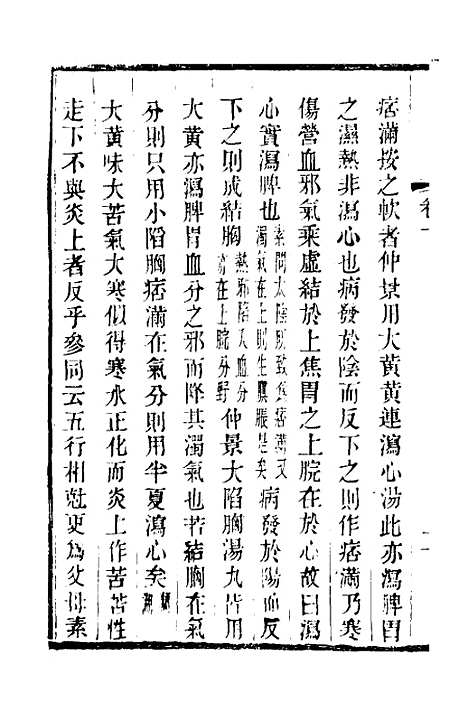 痞滿按之軟者仲景用大黃黃連瀉心湯此亦瀉脾胃
之濕熱非瀉心也病發於陰而反下之則作痞滿乃寒
傷營血邪氣乘虛結於上焦胃之上脘在於心故曰瀉
心實瀉脾也素問太陰所致爲痞滿又濁氣在上則生䐜脹是矣病發於陽而反
下之則成結胸熱邪陷入血分在上脘分野仲景大陷胸湯丸皆用
大黃亦瀉脾胃血分之邪而降其濁氣也若結胸在氣
分則只用小陷胸痞滿在氣分則用半夏瀉心矣
大黃味大苦氣大寒似得寒水正化而炎上作苦苦性
走下不與炎上者反乎參同云五行相尅更爲父母素
卷一